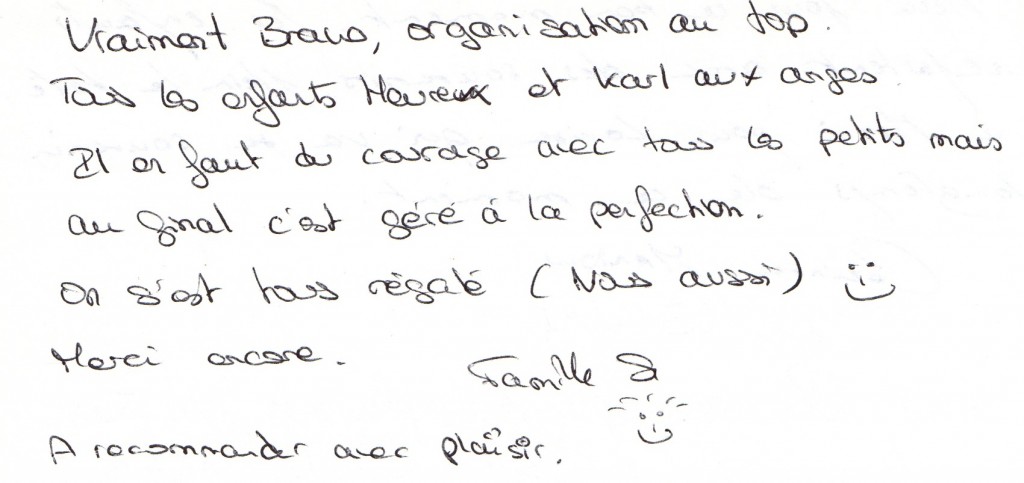 Vraiment Bravo, organisation au top.
Tous les enfants Heureux et Karl aux anges.
Il en faut du courage avec tous les petits mais
au final c'est géré à la perfection.
On s'est tous régalé (Nous aussi)
Merci encore. Famille
A recommander avec plaîsir.